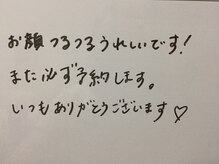 お顔つるつるうれしいです!
また必ず予約します。
いつもありがとうございます♡